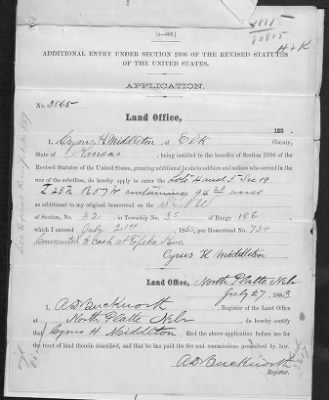 [4—008.]
ADDITIONAL ENTRY UNDER SECTION 2306 OF THE REVISED STATUTES
OF THE UNITED STATES.
H & K
APPLICATION.
No. 3865
Land Office,
188 .
I, Cyrus H Middleton, of Elk County,
State of Kansas, being entitled to the benefits of Section 2306 of the
Revised Statutes of the United States, granting additional lands to soldiers and sailors who served in the
war of the rebellion, do hereby apply to enter the Lots 4 and 5 Sec 19
T 25 R 57 W containing 94 acres
as additional to my original homestead on the NW
of Section, No. 32 in Township No. 30 of Range 18 E
which I entered July 21st 186, per Homestead No. 734
Commuted to Cash at Topeka Kans.
Cyrus H Middleton
Land Office, North Platte Nebr
July 27, 1883.
I, AD Buckworth, Register of the Land Office
at North Platte Nebr, do hereby certify
that Cyrus H. Middleton filed the above application before me for the
tract of land therein described, and that he has paid the fee and commissions prescribed by law.
AD Buckworth
Register.